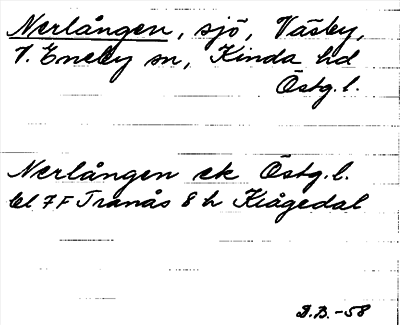 Nerlången, sjö, Väsby,
V. Eneby sn, Kinda hd
Östg. l.
Nerlången ek Östg. l.
bl 7 F Tranås 8 h Kiågedal
D.B. -58